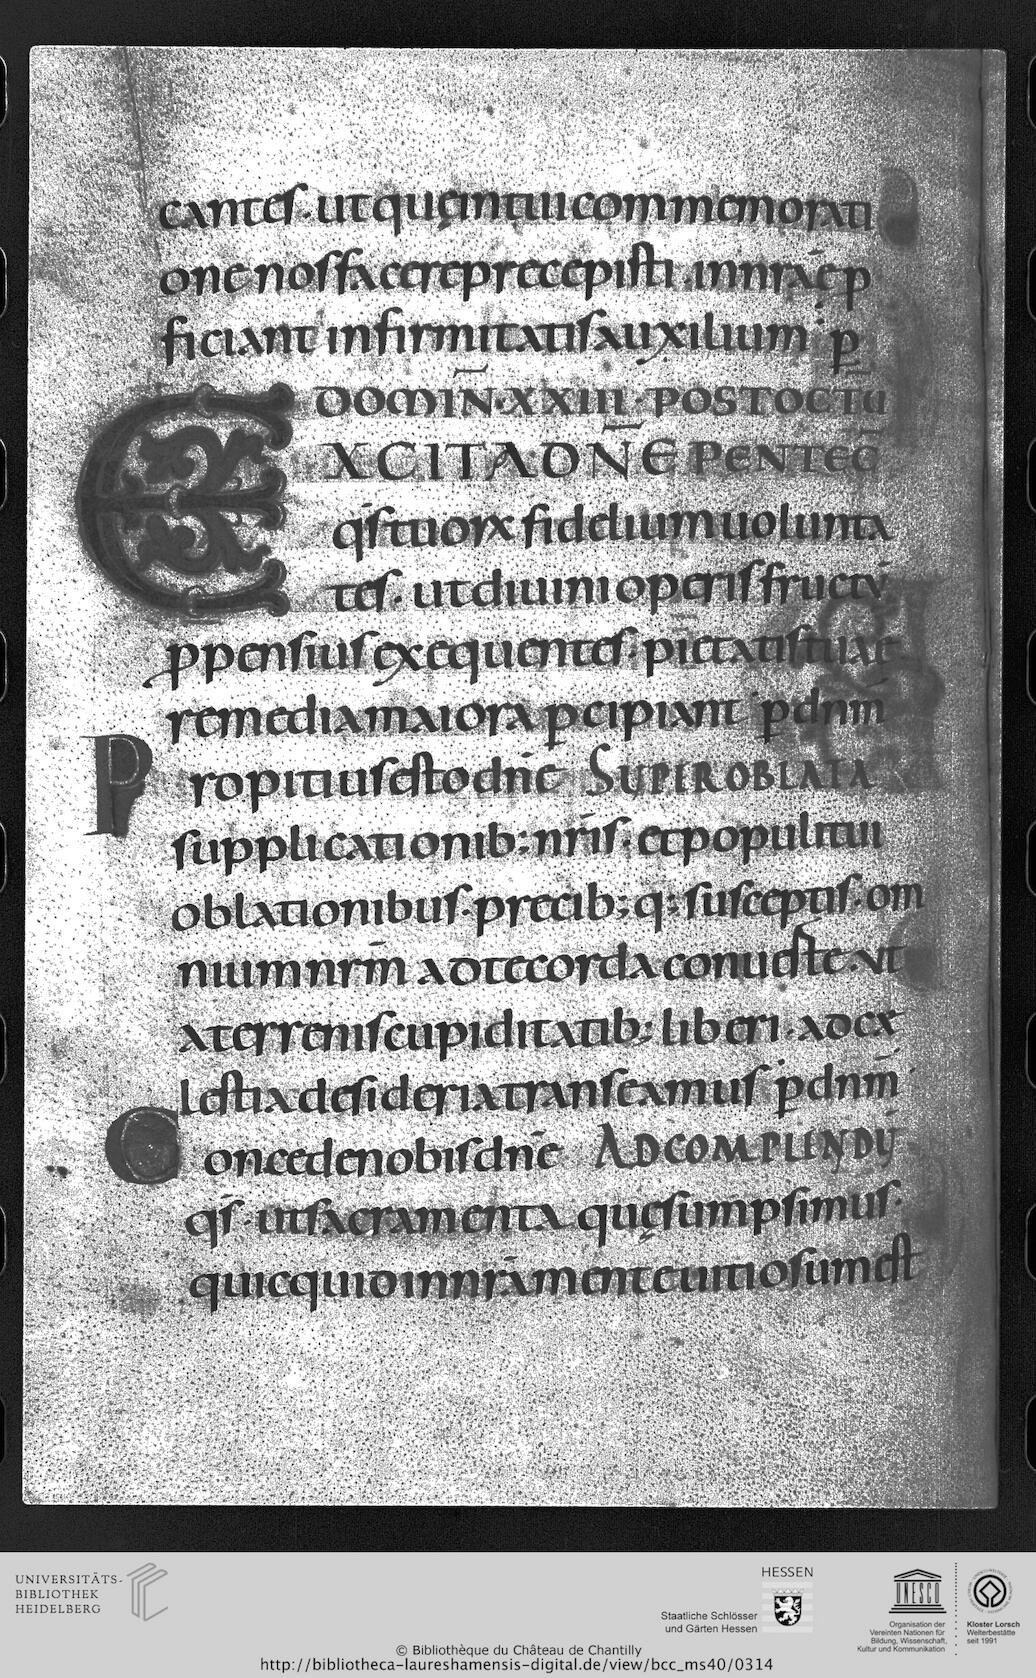 cantes. ut quę in tui commemorati
one nos facere precepisti. in nr̄ae p
ficiant infirmitatis auxilium. p̲
DOMIN̄. XXIIII. POST OCTA
EXCITA DN̄E PENTEC̄
q̄s tuorx fidelium uolunta
tes. ut diuini operis fructū
ppensius exequentes. pietatis tuae
remedia maiora pcipiant p dnm̄
Propitius esto dn̄e SUPER OBLATA
supplicationib; nr̄is. et populi tui
oblationibus. precib; q; susceptis. om
nium nrm̄ ad te corda conuerte. ut
a terrenis cupiditatib; liberi. ad cæ
lestia desideria transeamus p dnm̄
Concede nobis dn̄e AD COMPLENDŪ
q̄s. ut sacramenta quę sumpsimus.
quicquid in nr̄a mente uitiosum est
UNIVERSITÄTS-
BIBLIOTHEK
HEIDELBERG
HESSEN
Staatliche Schlösser
und Gärten Hessen
UNESCO
Organisation der
Vereinten Nationen für
Bildung, Wissenschaft,
Kultur und Kommunikation
Kloster Lorsch
Welterbestätte
seit 1991
© Bibliothèque du Château de Chantilly
http://bibliotheca-laureshamensis-digital.de/view/bcc_ms40/0314